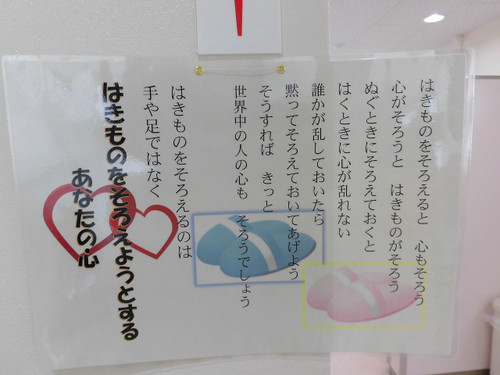 はきものをそろえると　心もそろう
心がそろうと　はきものがそろう
ぬぐときにそろえておくと
はくときに心が乱れない
誰かが乱しておいたら
黙ってそろえておいてあげよう
そうすれば　きっと
世界中の人の心も　そろうでしょう
はきものをそろえるのは
手や足ではなく
はきものをそろえようとする
あなたの心